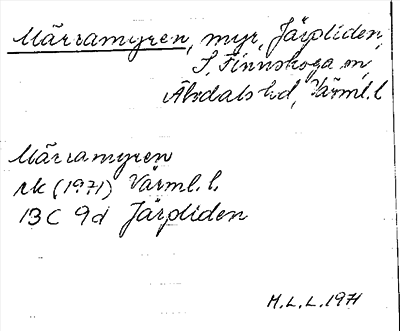 Märramyren, myr, Järpliden,
S. Finnskoga sn,
Älvdals hd, Värml. l.
Märramyren
rk (1971) Värml. l.
13C 9d Järpliden
M.L.L. 1971